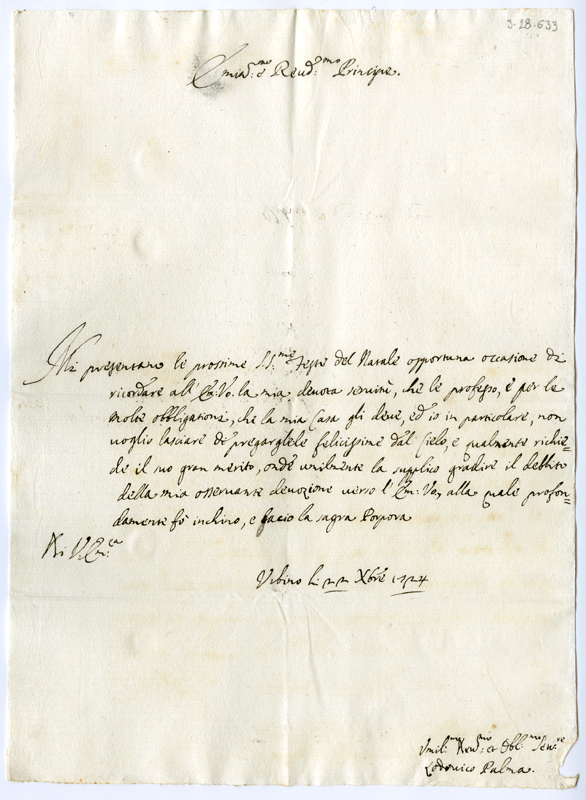 3-28-633
Emin:mo e Reud:mo Principe.
Mi presentano le prossime SS.me feste del Natale opportuna occasione di
ricordare all'Em: Va. la mia devota servitù, che le professo, e per le
molte obbligationi, che la mia Casa gli deve, ed io in particolare, non
voglio lasciare di pregarglele felicissime dal Cielo, e qualmente richie=
de il suo gran merito, onde umilmente la supplico gradire il debbito
della mia osservante devozione verso l'Em: Va, alla quale profon=
damente fò inchino, e bacio la sagra Porpora
Di V. Em:ca
Urbino li 22 Xbre 1724
Umil:mo Reud:mo et Obl:mo Serv:re
Lodovico Palma.